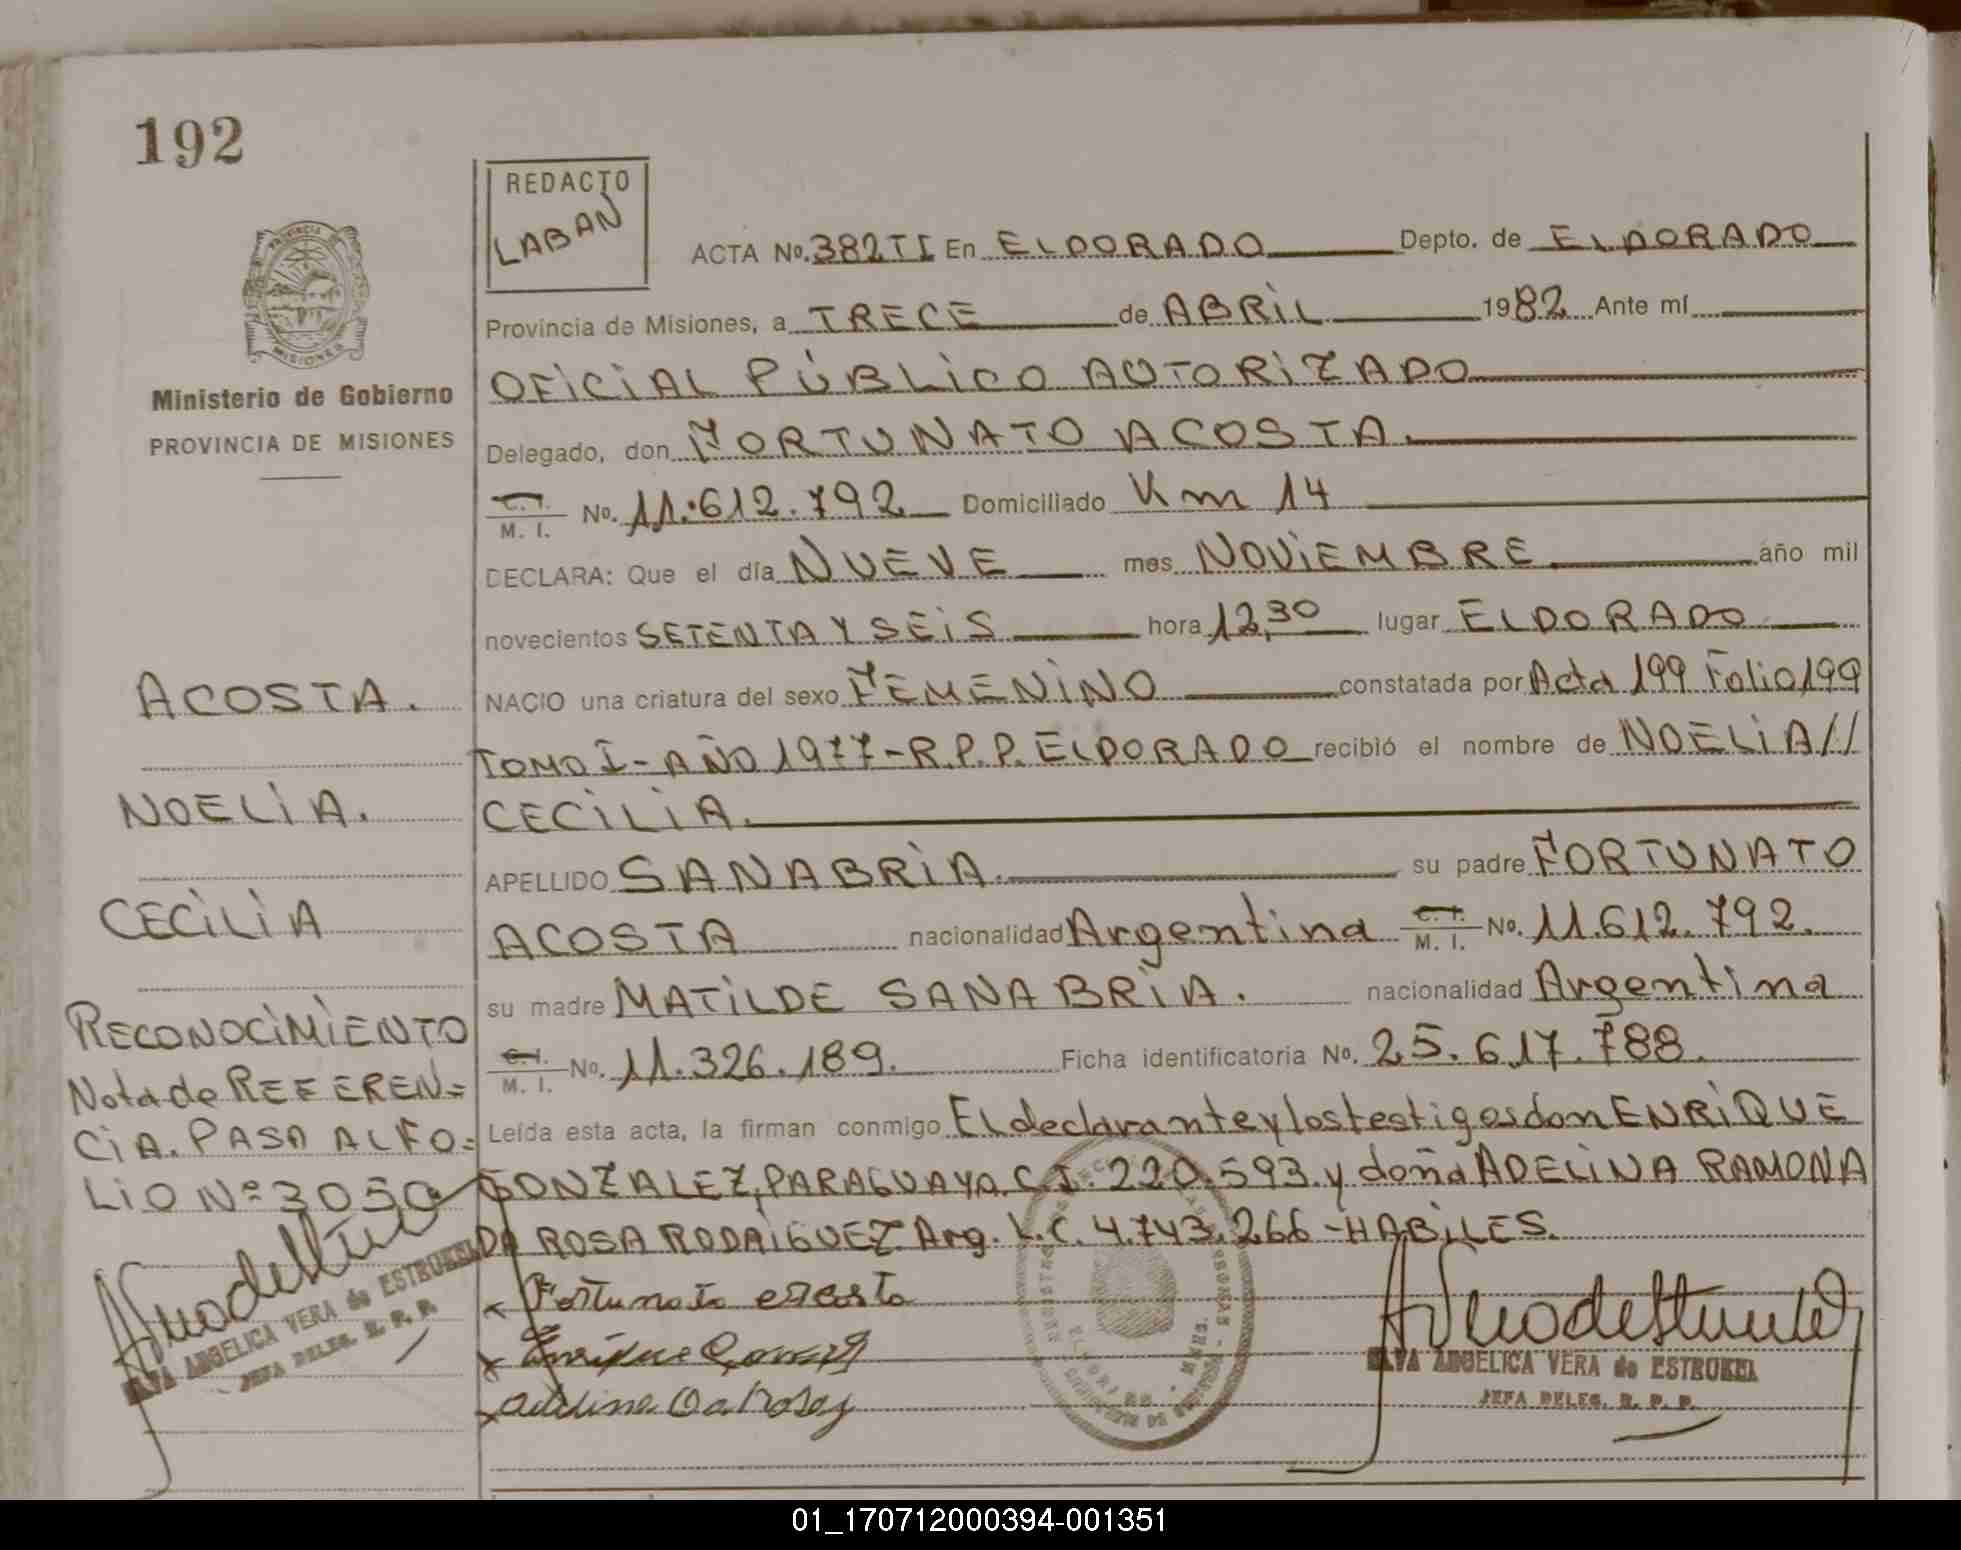 192
REDACTO
LABAN
PROVINCIA DE
MISIONES
Ministerio de Gobierno
PROVINCIA DE MISIONES
ACTA No. 382 TI En ELDORADO Depto. de ELDORADO
Provincia de Misiones, a TRECE de ABRIL 1982 Ante mí
OFICIAL PÚBLICO AUTORIZADO
Delegado, don FORTUNATO ACOSTA.
C. I.
M. I. No. 11.612.792 Domiciliado Km 14
DECLARA: Que el día NUEVE mes NOVIEMBRE año mil
novecientos SETENTA Y SEIS hora 12,30 lugar ELDORADO
NACIO una criatura del sexo FEMENINO constatada por Acta 199 Folio 199
TOMO I - AÑO 1977 - R.P.P. ELDORADO recibió el nombre de NOELIA//
CECILIA.
APELLIDO SANABRIA. su padre FORTUNATO
ACOSTA nacionalidad Argentina C. I. M. I. No. 11.612.792.
su madre MATILDE SANABRIA. nacionalidad Argentina
C. I. M. I. No. 11.326.189. Ficha identificatoria No. 25.617.788.
Leída esta acta, la firman conmigo El declarante y los testigos don ENRIQUE
GONZALEZ, PARAGUAYA. C.I. 220.593. y doña ADELINA RAMONA
DA ROSA RODRIGUEZ Arg. L.C. 4.743.266 - HABILES.
ACOSTA.
NOELIA.
CECILIA
RECONOCIMIENTO
Nota de REFEREN=
CIA. PASA AL FO=
LIO Nº 3050
ANGELICA VERA de ESTRUKEL
JEFA DELEG. R. P. P.
Fortunato acosta
Enrique Gonzalez
Adelina Da Rosa
ANGELICA VERA de ESTRUKEL
JEFA DELEG. R. P. P.
01_170712000394-001351